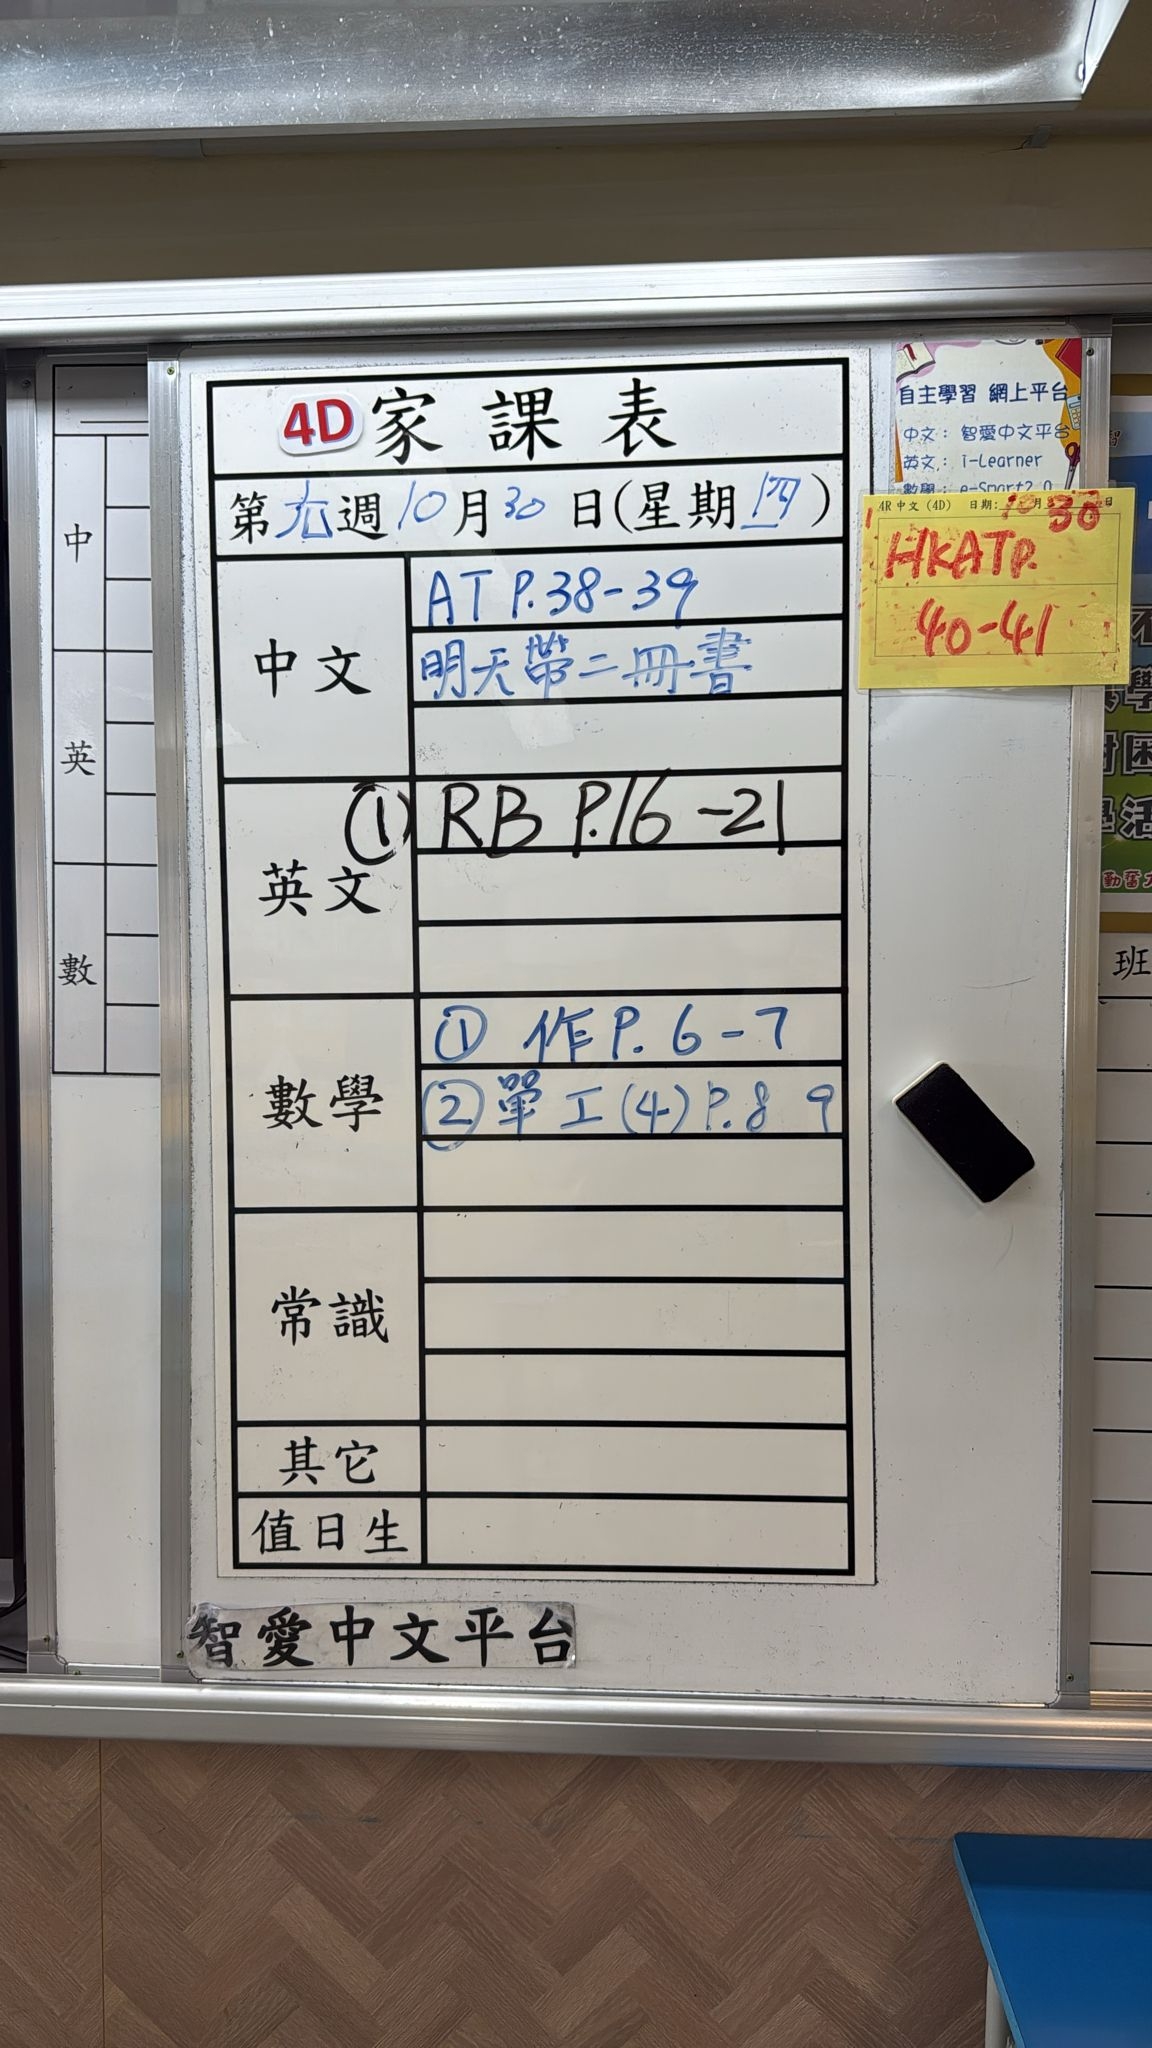 4D 家課表
第九週10月30日(星期四)
中文
AT P.38-39
明天帶二冊書
英文
① RB P.16-21
數學
① 作P.6-7
② 單工(4)P.8 9
常識
其它
值日生
智愛中文平台
自主學習 網上平台
中文：智愛中文平台
英文：i-Learner
數學：e-Smart2.0
4R中文 (4D) 日期:10月30日
HKATP.
40-41
中
英
數
班